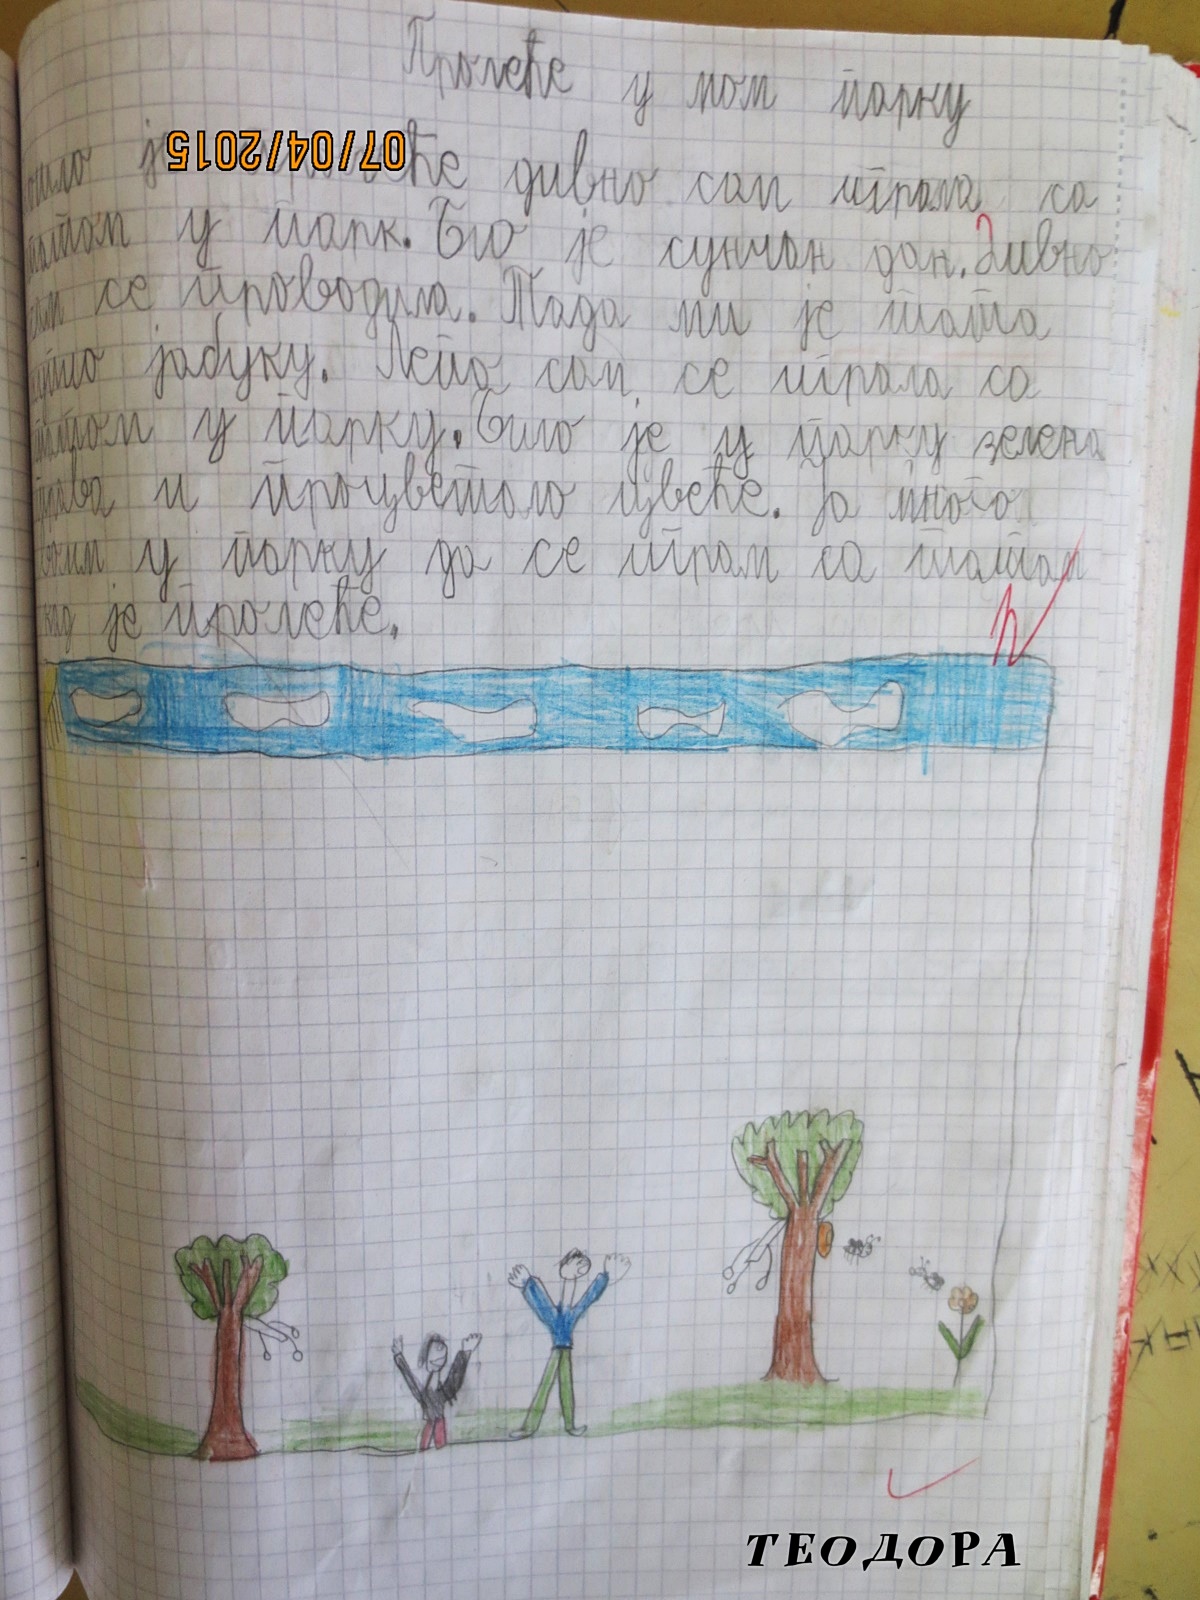 Пролеће у мом парку
07/04/2015
је пролеће дивно сам играла са
татом у парк. Био је сунчан дан. Дивно
сам се проводила. Тада ми је тата
јабуку. Лепо сам се играла са
татом у парку. Било је у парку зелена
трава и процветало цвеће. Ја много
волим у парку да се играм са татом
кад је пролеће.
ТЕОДОРА